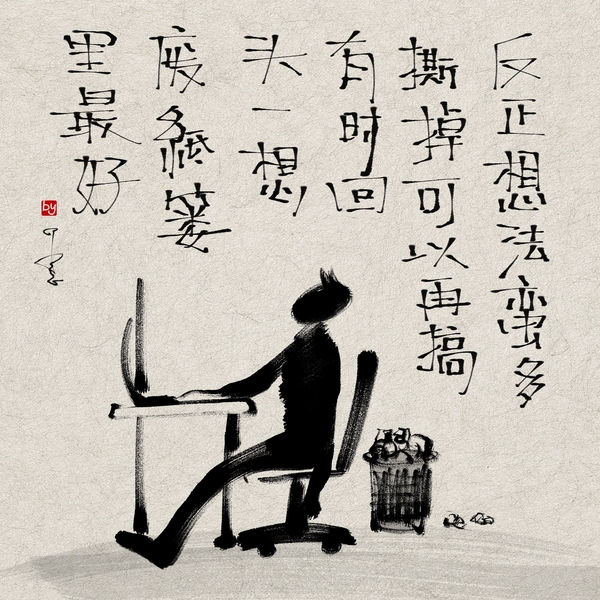 反正想法蛮多
撕掉可以再搞
有时回
头一想
废纸篓
里最好
by